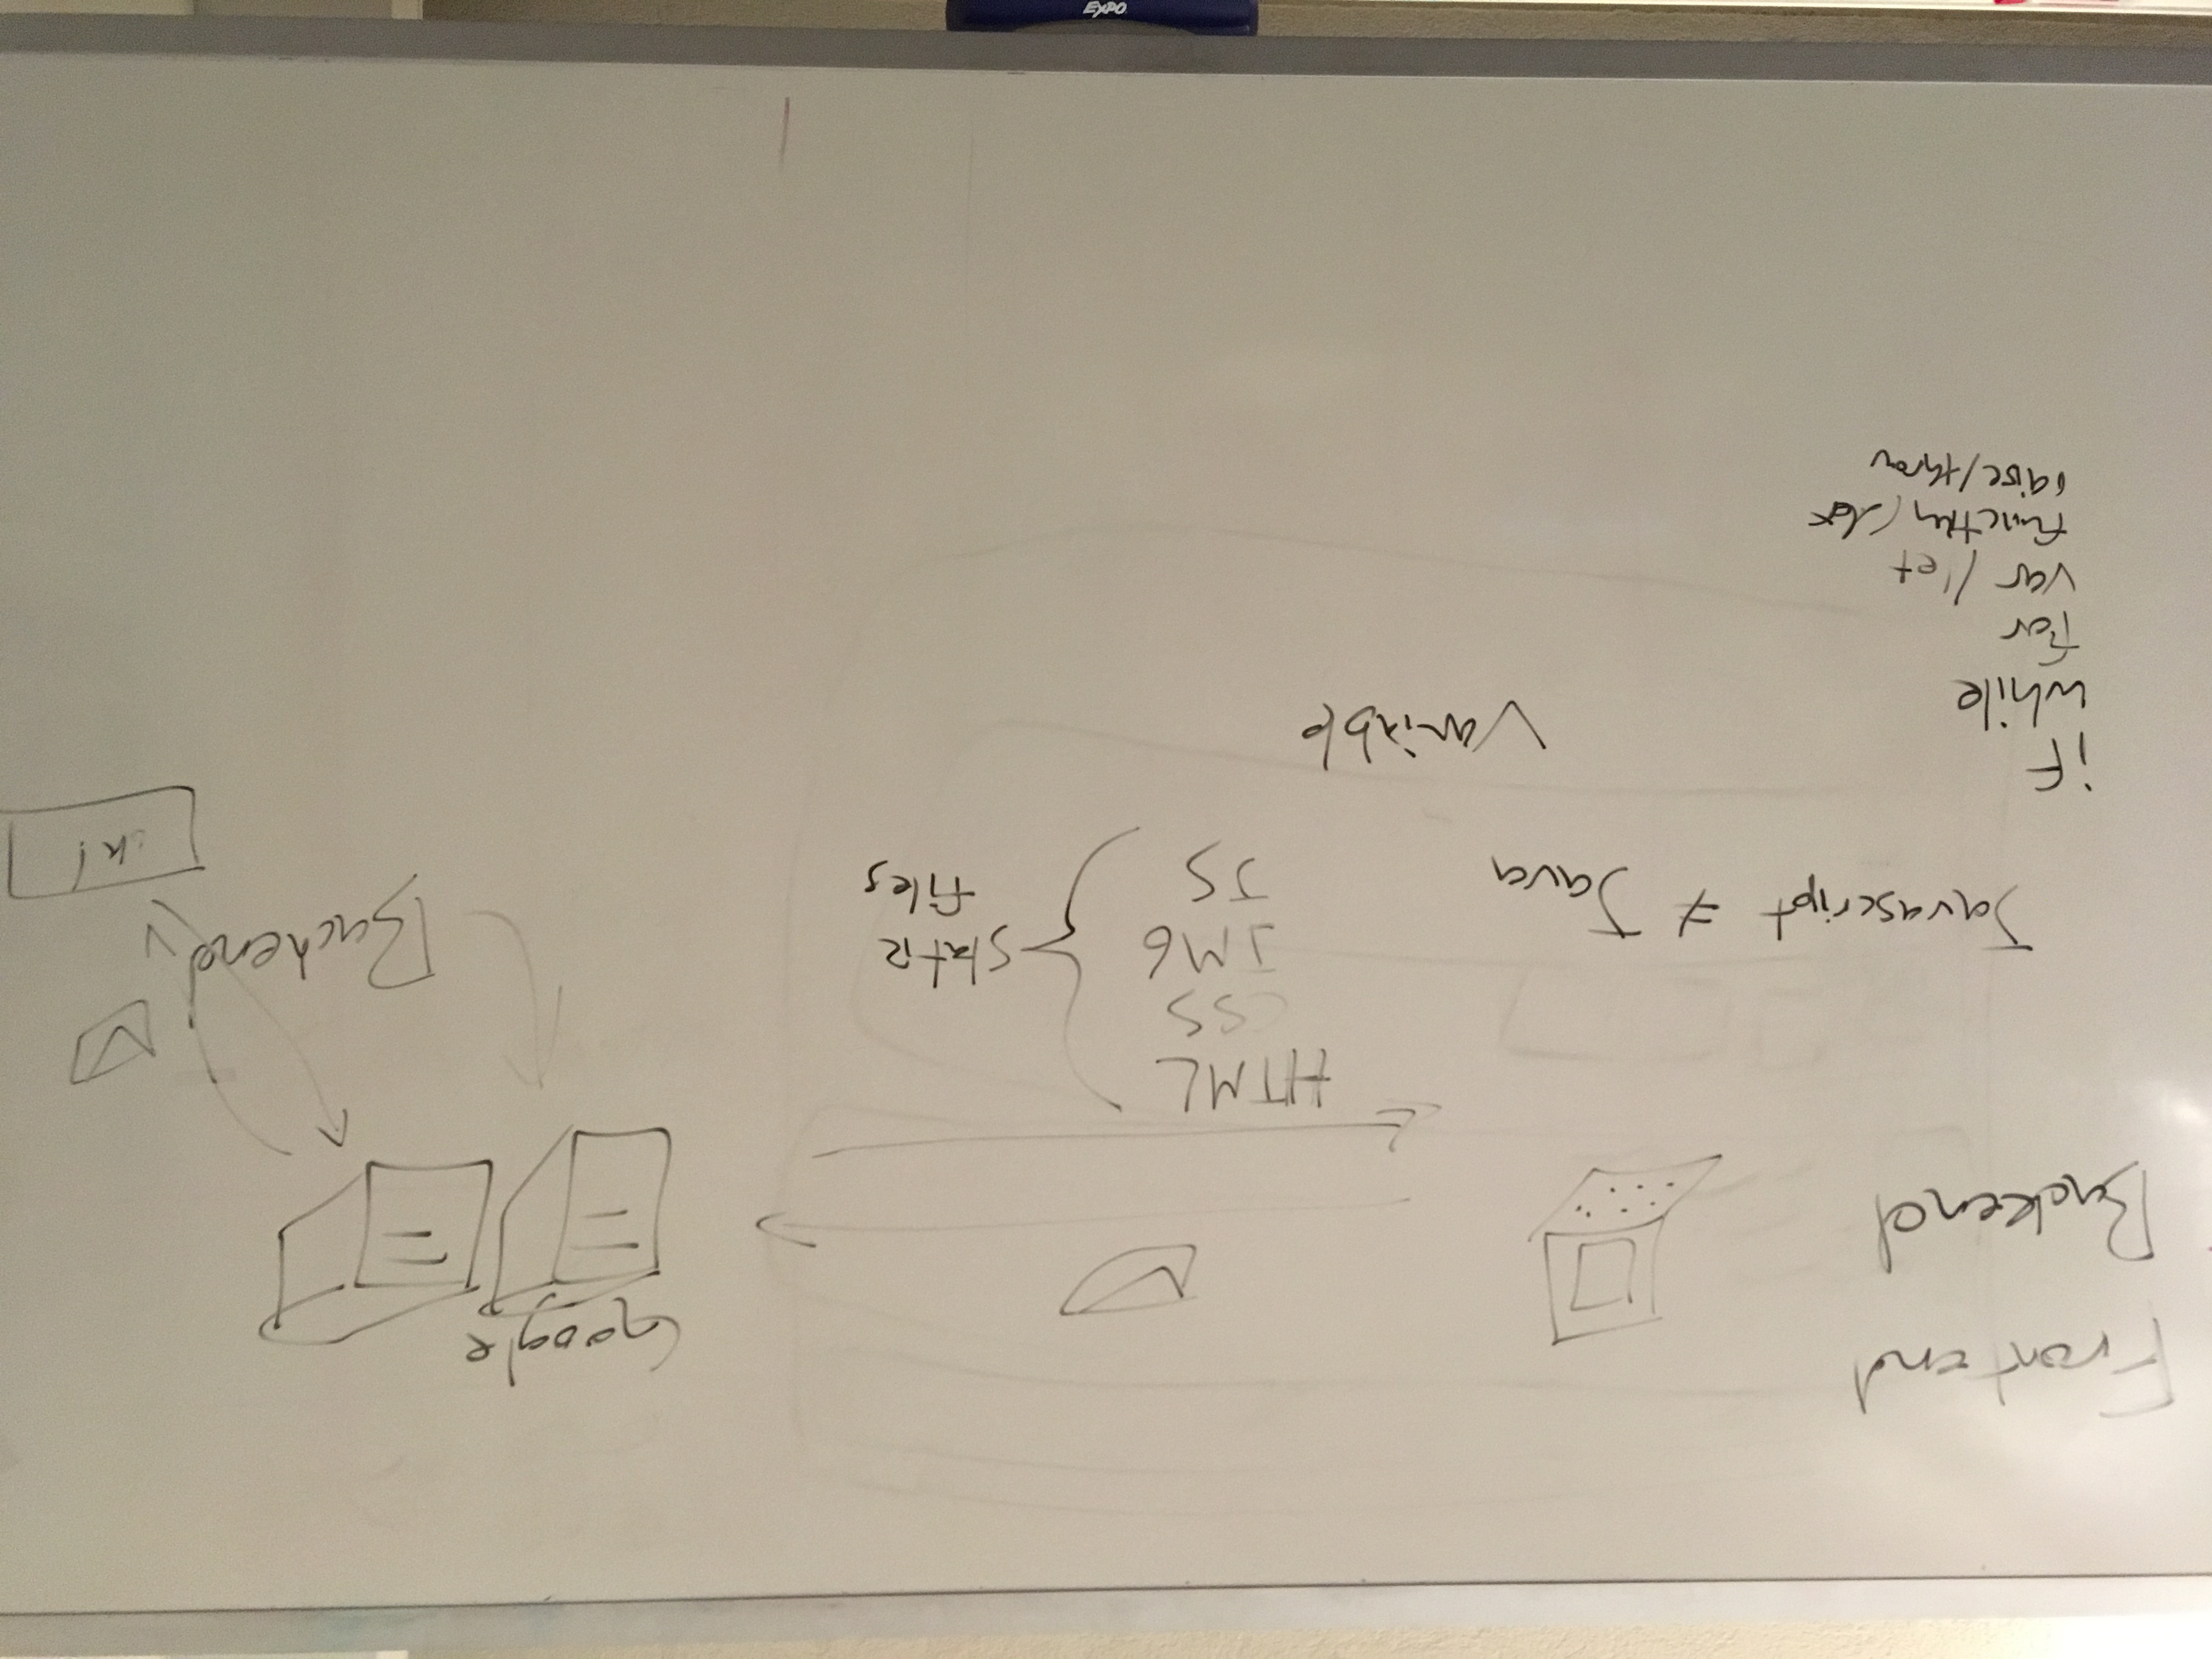 Frontend
Backend
Google
HTML
CSS
IMG
JS
static
files
Backend
ok!
Javascript ≠ Java
if
while
for
var / let
function / def
raise/throw
Variable
EXPO